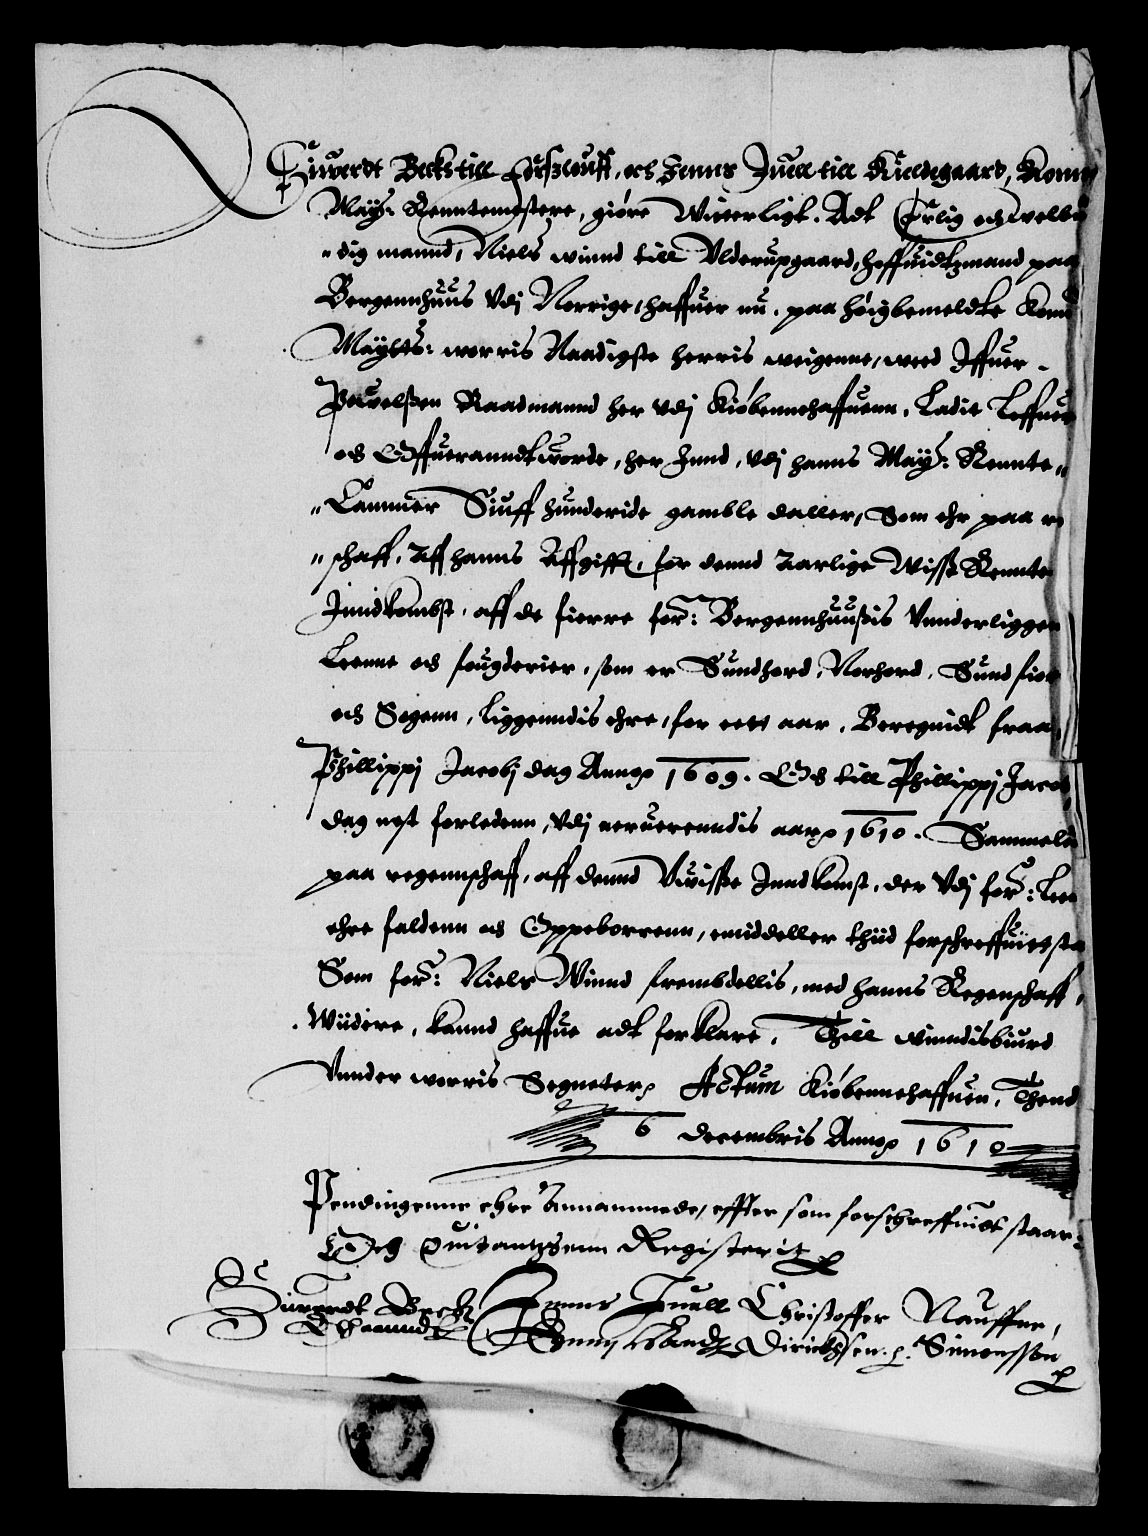 Siuerdt Beck till Førszløuff, och Henns Juell till Kieldegaard, Konn
Mayts: Renntemestere, giøre Witterligt. Adt Erlig och welbü
=dig mannd, Niels winnd till Ulderupgaard, høffuidtzmand paa
Bergennhuus Vdj Norrige, haffuer nu. paa høigbemeldte Konn
Mayhts: worris Naadigste herris weigenne, weed Iffuer
Pouelßen Raadmannd her vdj Kiøbennehaffuenn, Ladit Leffuer
och Offuerandtworde, her Innd, vdj hanns Mayts: Rennte=
=Cammer Siuff hunderide gamble daller, Som ehr paa re
=schaff, Aff hanns Affgifft, for dennd Aarlige Wisse Rennte
Inndkombst, aff de fierre for: Bergennhuußis Vnnderliggen
Leenne och fougderier, som er Sundhord, Norhord, Sundfior
och Sogenn, liggenndis ehre, for eett aar, Beregnidt fraa
Phillippj Jacobj dag Anno 1609. Och till Phillippj Jacob
dag nest forledenn, vdj neruerenndis aar 1610. Sammeled
paa regennschaff, aff dennd Vwisse Inndkomst, der Vdj for: Lee
ehre faldenn och Oppeborrenn, emiddeller thiid forschreffuitt sta
Som for: Niels Winnd frembdellis, med hanns Regenschaff,
Wiidere, kannd haffue adt forklare, Thill winndisbiurd
Vnnder worris Segneter, Actum Kiøbennehaffuen, Thend
6 decembris Anno 1610
Pendingenne ehre Annammede, effter som forschreffuidt staar:
Och Quitantzsenn Registerit
Siuerdt Beck Henns Juell Christoffer Nauffne,
Dirichsen. Simensson